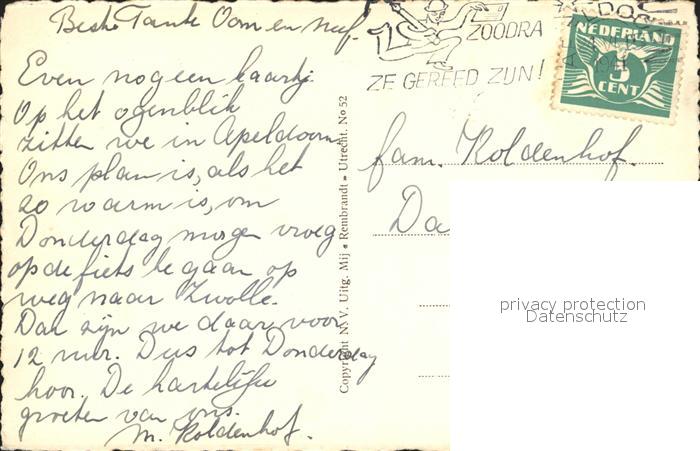 Beste Tante Oom en neef.
Even nog een kaartje.
Op het ogenblik
zitten we in Apeldoorn
Ons plan is, als het
zo warm is, om
Donderdag morgen vroeg
op de fiets te gaan op
weg naar Zwolle.
Dan zijn we daar voor
12 uur. Dus tot Donderdag
hoor. De hartelijke
groeten van ons.
M. Koldenhof.
Copyright N. V. Uitg. Mij « Rembrandt » Utrecht. No 52
ZOODRA
ZE GEREED ZIJN!
1941
NEDERLAND
3
CENT
fam. Koldenhof.
Da
privacy protection
Datenschutz